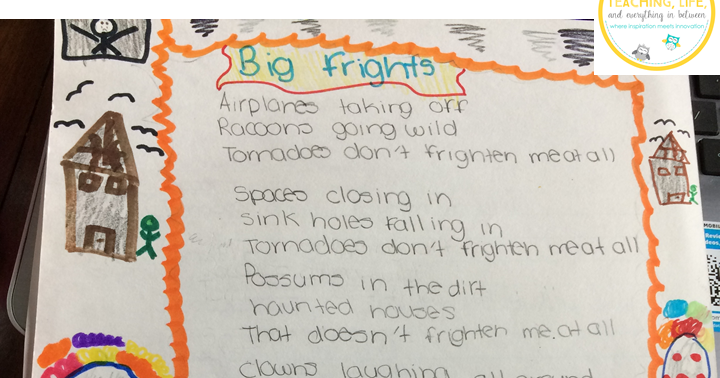 TEACHING, LIFE,
and everything in between
where inspiration meets innovation
Big frights
Airplanes taking off
Racoons going wild
Tornadoes don't frighten me at all
Spaces closing in
sink holes falling in
Tornadoes don't frighten me at all
Possums in the dirt
haunted houses
That doesn't frighten me. at all
Clowns laughing all around
MOBIL